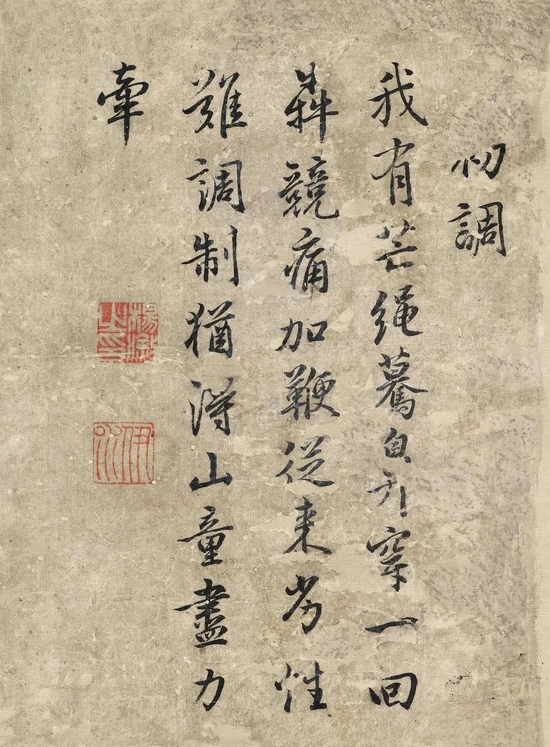 初調
我有芒繩驀鼻穿一回
犇競痛加鞭從來劣性
難調制猶得山童盡力
牽